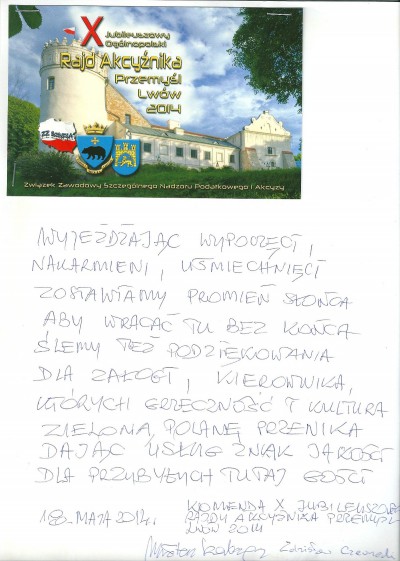 X
Jubileuszowy
Ogólnopolski
Rajd Akcyźnika
Przemyśl
Lwów
2014
Związek Zawodowy Szczególnego Nadzoru Podatkowego i Akcyzy
WYJEŻDŻAJĄC WYPOCZĘCI,
NAKARMIENI, UŚMIECHNIĘCI
ZOSTAWIAMY PROMIEŃ SŁOŃCA
ABY WRACAĆ TU BEZ KOŃCA
ŚLEMY TEŻ PODZIĘKOWANIA
DLA ZAŁOGI, KIEROWNIKA,
KTÓRYCH GRZECZNOŚĆ I KULTURA
ZIELONĄ POLANĘ PRZENIKA
DAJĄC USŁUG ZNAK JAKOŚCI
DLA PRZYBYŁYCH TUTAJ GOŚCI
18 MAJA 2014r. KOMENDA X JUBILEUSZOWEGO
RAJDU AKCYŹNIKA PRZEMYŚL
LWÓW 2014
Zdzisław